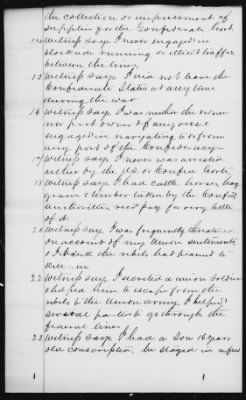 the collection or impressment of
supplies for the Confederate Govt.
14 Witness says I never engaged in
blockade running or illicit traffic
between the lines
15 Witness says I did not leave the
Confederate States at any time
during the war
16 Witness says I was neither the owner
nor part owner of any vessel
engaged in navigating to or from
any port of the Confederacy
17 Witness says I never was arrested
either by the U.S. or Confed Govts,
18 Witness says I had cattle horses hogs
grain & timber taken by the Confed
Authorities recd pay for very little
of it.
20 Witness says I was frequently threatened
on account of my Union sentiments
& I think the rebels had planned to
kill me
22 Witness says I secreted a union soldier
& helped him to escape from the
rebels to the Union army I helped
several parties to go through the
federal lines
23 Witness says I had a Son 16 years
old conscripted, he stayed in a few